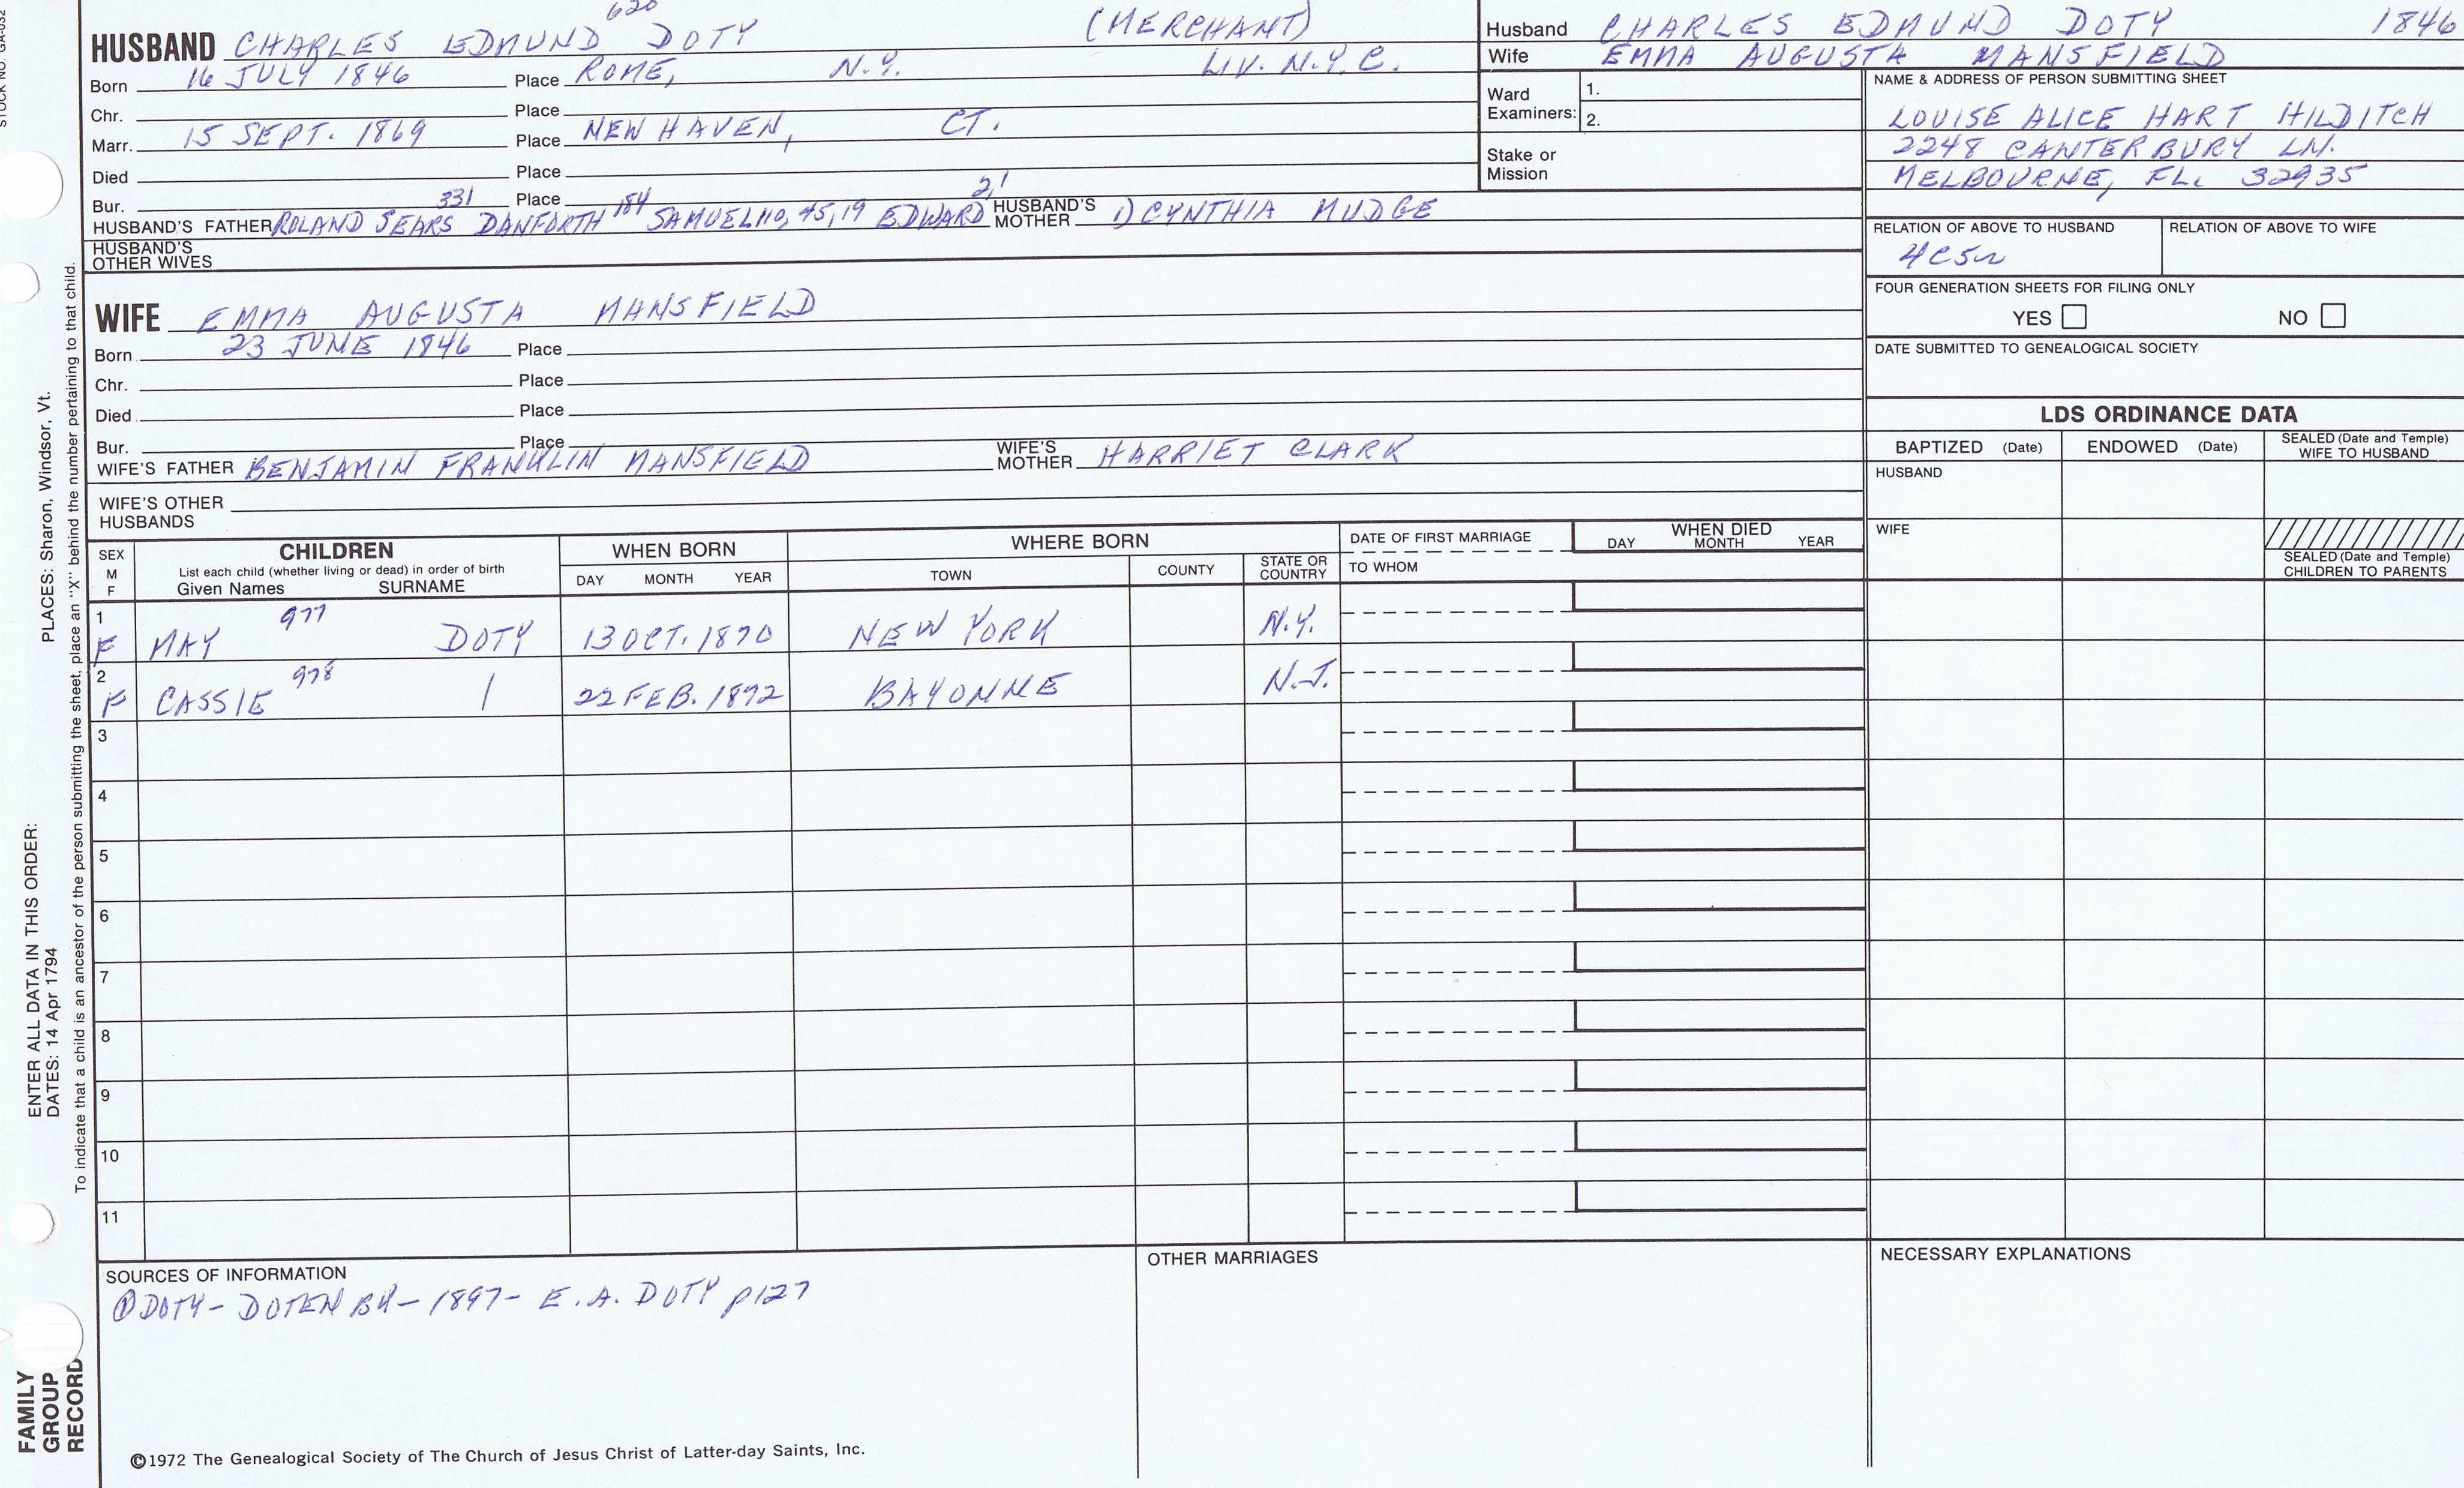 STOCK NO. GA-032
620
HUSBAND CHARLES EDMUND DOTY (MERCHANT)
Born 16 JULY 1846 Place ROME, N.Y. LIV. N.Y.C.
Chr. Place
Marr. 15 SEPT. 1869 Place NEW HAVEN, CT.
Died Place
Bur. Place
331 184 2,1
HUSBAND'S FATHER ROLAND SEARS DANFORTH SAMUEL 110, 45, 19 EDWARD HUSBAND'S MOTHER 1) CYNTHIA MUDGE
HUSBAND'S OTHER WIVES
WIFE EMMA AUGUSTA MANSFIELD
Born 23 JUNE 1846 Place
Chr. Place
Died Place
Bur. Place
WIFE'S FATHER BENJAMIN FRANKLIN MANSFIELD WIFE'S MOTHER HARRIET CLARK
WIFE'S OTHER HUSBANDS
Husband CHARLES EDMUND DOTY 1846
Wife EMMA AUGUSTA MANSFIELD
Ward Examiners: 1.
2.
Stake or Mission
NAME & ADDRESS OF PERSON SUBMITTING SHEET
LOUISE ALICE HART HILDITCH
2248 CANTERBURY LN.
MELBOURNE, FL. 32935
RELATION OF ABOVE TO HUSBAND RELATION OF ABOVE TO WIFE
4C5R
FOUR GENERATION SHEETS FOR FILING ONLY
YES NO
DATE SUBMITTED TO GENEALOGICAL SOCIETY
LDS ORDINANCE DATA
BAPTIZED (Date) ENDOWED (Date) SEALED (Date and Temple) WIFE TO HUSBAND
HUSBAND
WIFE
SEALED (Date and Temple) CHILDREN TO PARENTS
SEX M F CHILDREN WHEN BORN WHERE BORN DATE OF FIRST MARRIAGE WHEN DIED
List each child (whether living or dead) in order of birth
Given Names SURNAME DAY MONTH YEAR TOWN COUNTY STATE OR COUNTRY TO WHOM DAY MONTH YEAR
977
1 F MAY DOTY 13 OCT. 1870 NEW YORK N.Y.
978
2 F CASSIE | 22 FEB. 1872 BAYONNE N.J.
3
4
5
6
7
8
9
10
11
SOURCES OF INFORMATION
① DOTY-DOTEN BK-1897- E.A. DOTY p127
OTHER MARRIAGES
NECESSARY EXPLANATIONS
©1972 The Genealogical Society of The Church of Jesus Christ of Latter-day Saints, Inc.
FAMILY GROUP RECORD
ENTER ALL DATA IN THIS ORDER:
DATES: 14 Apr 1794 PLACES: Sharon, Windsor, Vt.
To indicate that a child is an ancestor of the person submitting the sheet, place an "X" behind the number pertaining to that child.